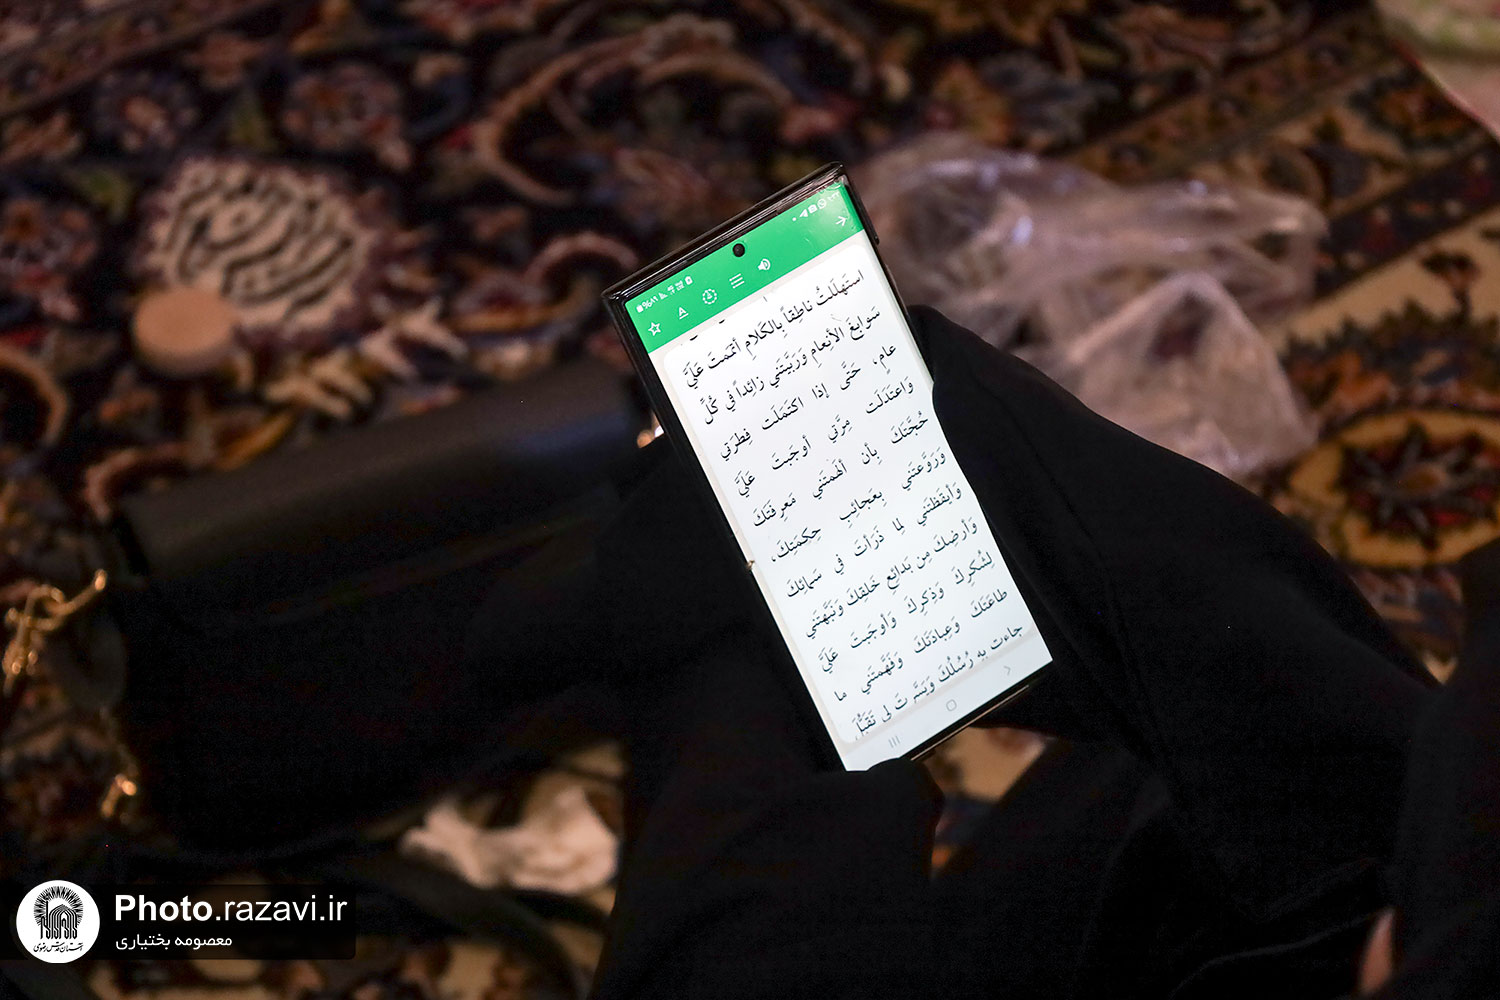 %۸۹
استَهلَلتُ ناطِقاً بِالكَلامِ أتمَمتَ عَلَيَّ
سَوابِغَ الأنعامِ وَرَبَّيتَني زائِداً في كُلِّ
عامٍ، حَتّى إذا اكتَمَلَت فِطرَتي
وَاعتَدَلَت مِرَّتي أوجَبتَ عَلَيَّ
حُجَّتَكَ بِأن ألهَمتَني مَعرِفَتَكَ
وَرَوَّعتَني بِعَجائِبِ حِكمَتِكَ،
وَأيقَظتَني لِما ذَرَأتَ في سَمائِكَ
وَأرضِكَ مِن بَدائِعِ خَلقِكَ وَنَبَّهتَني
لِشُكرِكَ وَذِكرِكَ وَأوجَبتَ عَلَيَّ
طاعَتَكَ وَعِبادَتَكَ وَفَهَّمتَني ما
جاءت بِهِ رُسُلُكَ وَيَسَّرتَ لي تَقَبُّلَ
Photo.razavi.ir
معصومه بختیاری
آستان قدس رضوی